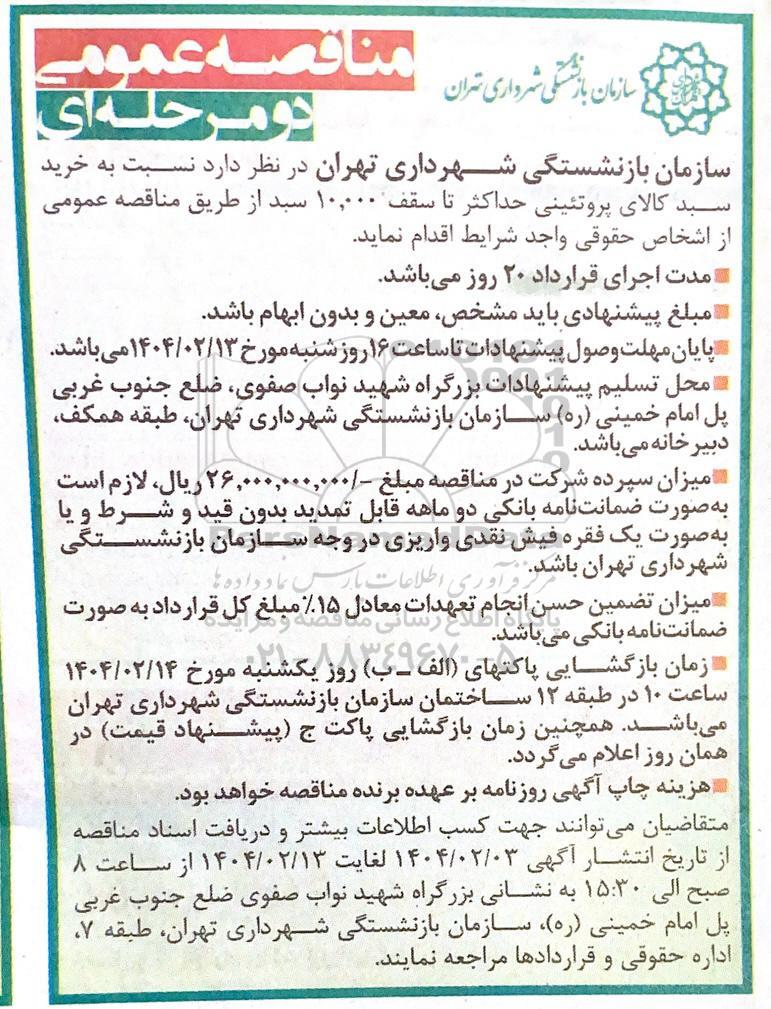 مناقصه عمومی
دو مرحله‌ای
سازمان بازنشستگی شهرداری تهران
سازمان بازنشستگی شهرداری تهران در نظر دارد نسبت به خرید
سبد کالای پروتئینی حداکثر تا سقف ۱۰,۰۰۰ سبد از طریق مناقصه عمومی
از اشخاص حقوقی واجد شرایط اقدام نماید.
مدت اجرای قرارداد ۲۰ روز می‌باشد.
مبلغ پیشنهادی باید مشخص، معین و بدون ابهام باشد.
پایان مهلت وصول پیشنهادات تا ساعت ۱۶ روز شنبه مورخ ۱۴۰۴/۰۲/۱۳ می‌باشد.
محل تسلیم پیشنهادات بزرگراه شهید نواب صفوی، ضلع جنوب غربی
پل امام خمینی (ره) سازمان بازنشستگی شهرداری تهران، طبقه همکف،
دبیرخانه می‌باشد.
میزان سپرده شرکت در مناقصه مبلغ -/۲۶,۰۰۰,۰۰۰,۰۰۰ ریال، لازم است
به‌صورت ضمانت‌نامه بانکی دو ماهه قابل تمدید بدون قید و شرط و یا
به‌صورت یک فقره فیش نقدی واریزی در وجه سازمان بازنشستگی
شهرداری تهران باشد.
میزان تضمین حسن انجام تعهدات معادل ۱۵٪ مبلغ کل قرارداد به صورت
ضمانت‌نامه بانکی می‌باشد.
زمان بازگشایی پاکتهای (الف ـ ب) روز یکشنبه مورخ ۱۴۰۴/۰۲/۱۴
ساعت ۱۰ در طبقه ۱۲ ساختمان سازمان بازنشستگی شهرداری تهران
می‌باشد. همچنین زمان بازگشایی پاکت ج (پیشنهاد قیمت) در
همان روز اعلام می‌گردد.
هزینه چاپ آگهی روزنامه بر عهده برنده مناقصه خواهد بود.
متقاضیان می‌توانند جهت کسب اطلاعات بیشتر و دریافت اسناد مناقصه
از تاریخ انتشار آگهی ۱۴۰۴/۰۲/۰۳ لغایت ۱۴۰۴/۰۲/۱۳ از ساعت ۸
صبح الی ۱۵:۳۰ به نشانی بزرگراه شهید نواب صفوی ضلع جنوب غربی
پل امام خمینی (ره)، سازمان بازنشستگی شهرداری تهران، طبقه ۷،
اداره حقوقی و قراردادها مراجعه نمایند.
ParsNamadData
مرکز فرآوری اطلاعات پارس نماد داده‌ها
پایگاه اطلاع رسانی مناقصه و مزایده
۰۲۱-۸۸۳۴۹۶۷۰-۵